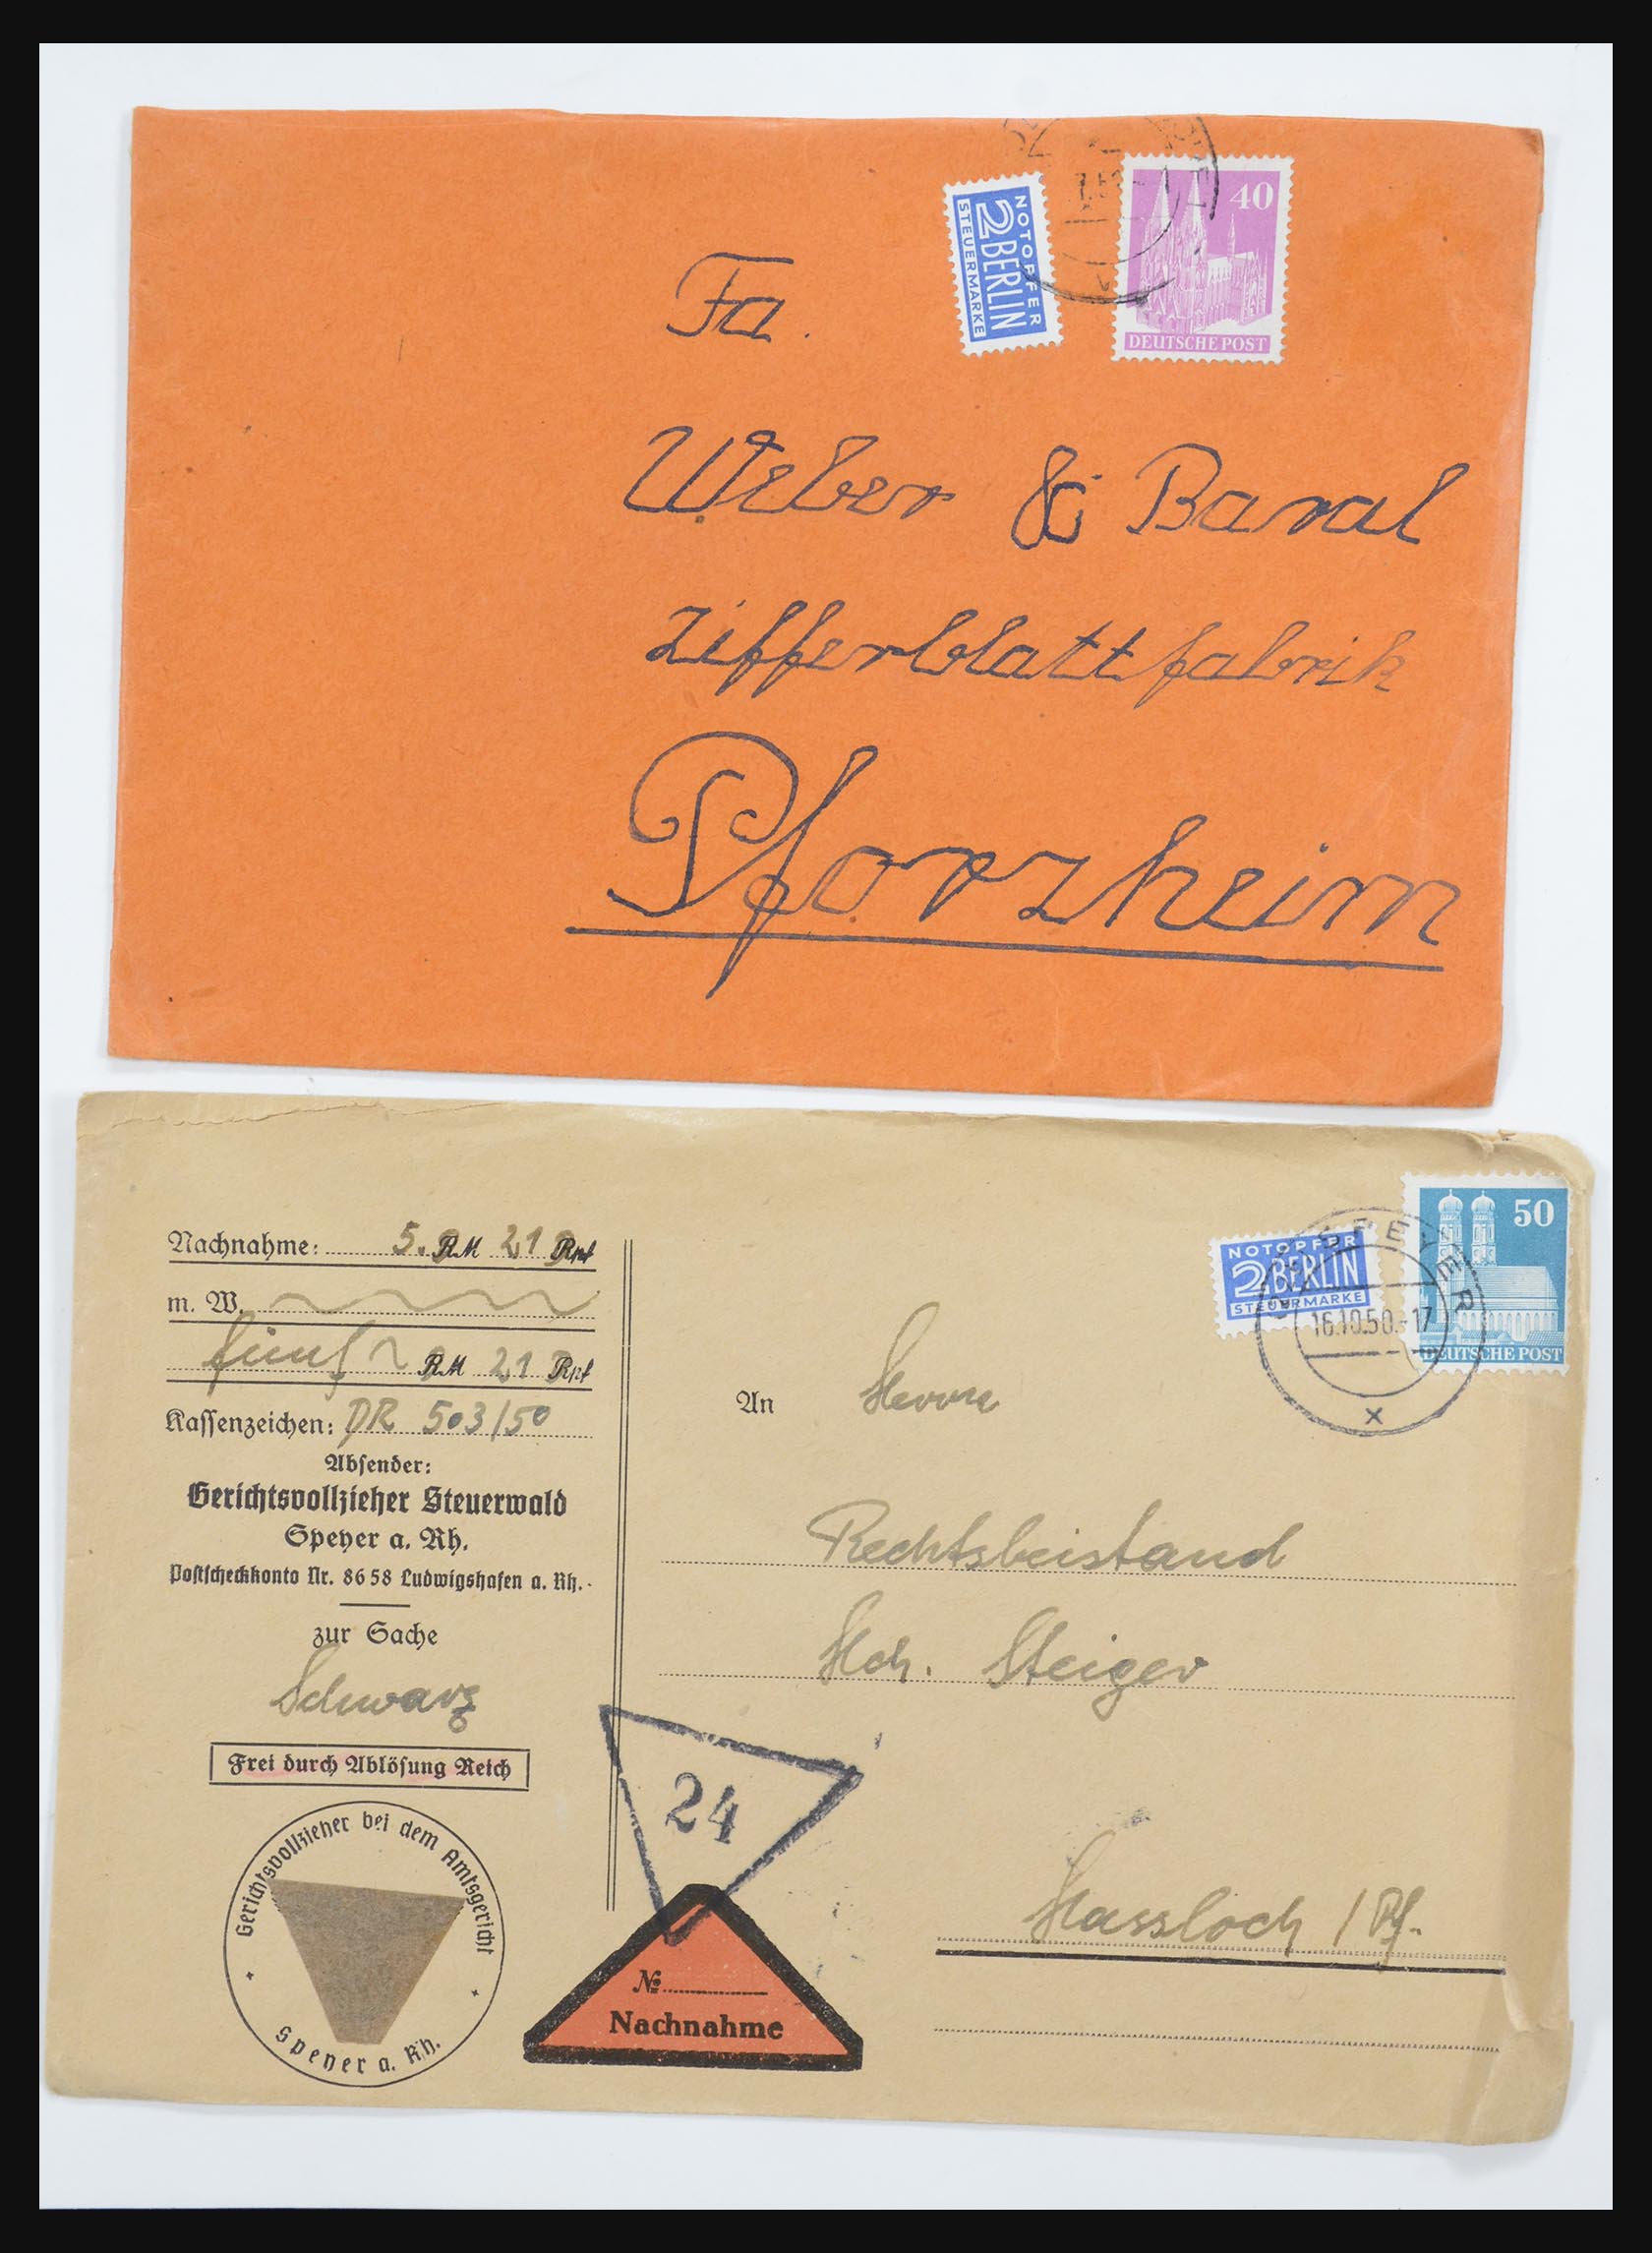 40
DEUTSCHE POST
NOTOPFER
2 BERLIN
STEUERMARKE
Fa.
Weber & Baral
Zifferblattfabrik
Pforzheim
50
DEUTSCHE POST
NOTOPFER
2 BERLIN
STEUERMARKE
SPEYER
16.10.50.-17
x
Nachnahme: 5. RM 21 Rpf
m. W.
fünf RM 21 Rpf
Kassenzeichen: DR 503/50
Absender:
Gerichtsvollzieher Steuerwald
Speyer a. Rh.
Postscheckkonto Nr. 8658 Ludwigshafen a. Rh.
zur Sache
Schwarz
Frei durch Ablösung Reich
Gerichtsvollzieher bei dem Amtsgericht
Speyer a. Rh.
An Herrn
Rechtsbeistand
Hch. Steiger
Hassloch / Pf.
24
№
Nachnahme